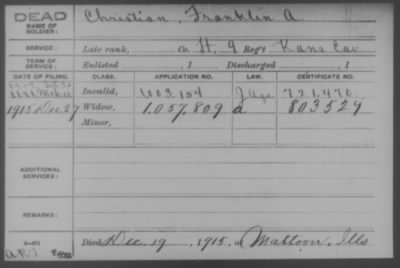 DEAD
NAME OF SOLDIER:
Christian, Franklin A
SERVICE:
Late rank, Co H, 9 Reg't Kans Cav
TERM OF SERVICE:
Enlisted , 1 Discharged , 1
DATE OF FILING. CLASS. APPLICATION NO. LAW. CERTIFICATE NO.
Invalid, 721,470
1915 Dec 27 Widow, 1,057,809 a 803529
Minor,
ADDITIONAL SERVICES:
REMARKS:
Died Dec 19, 1915, at Mattoon, Ills